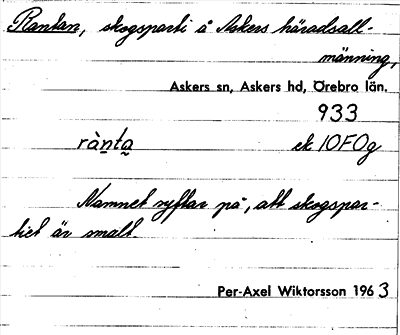 Rantan, skogsparti å Askers häradsall-
männing,
Askers sn, Askers hd, Örebro län.
933
ràn̲ta̰ ek 10F0g
Namnet syftar på, att skogspar-
tiet är smalt
Per-Axel Wiktorsson 1963